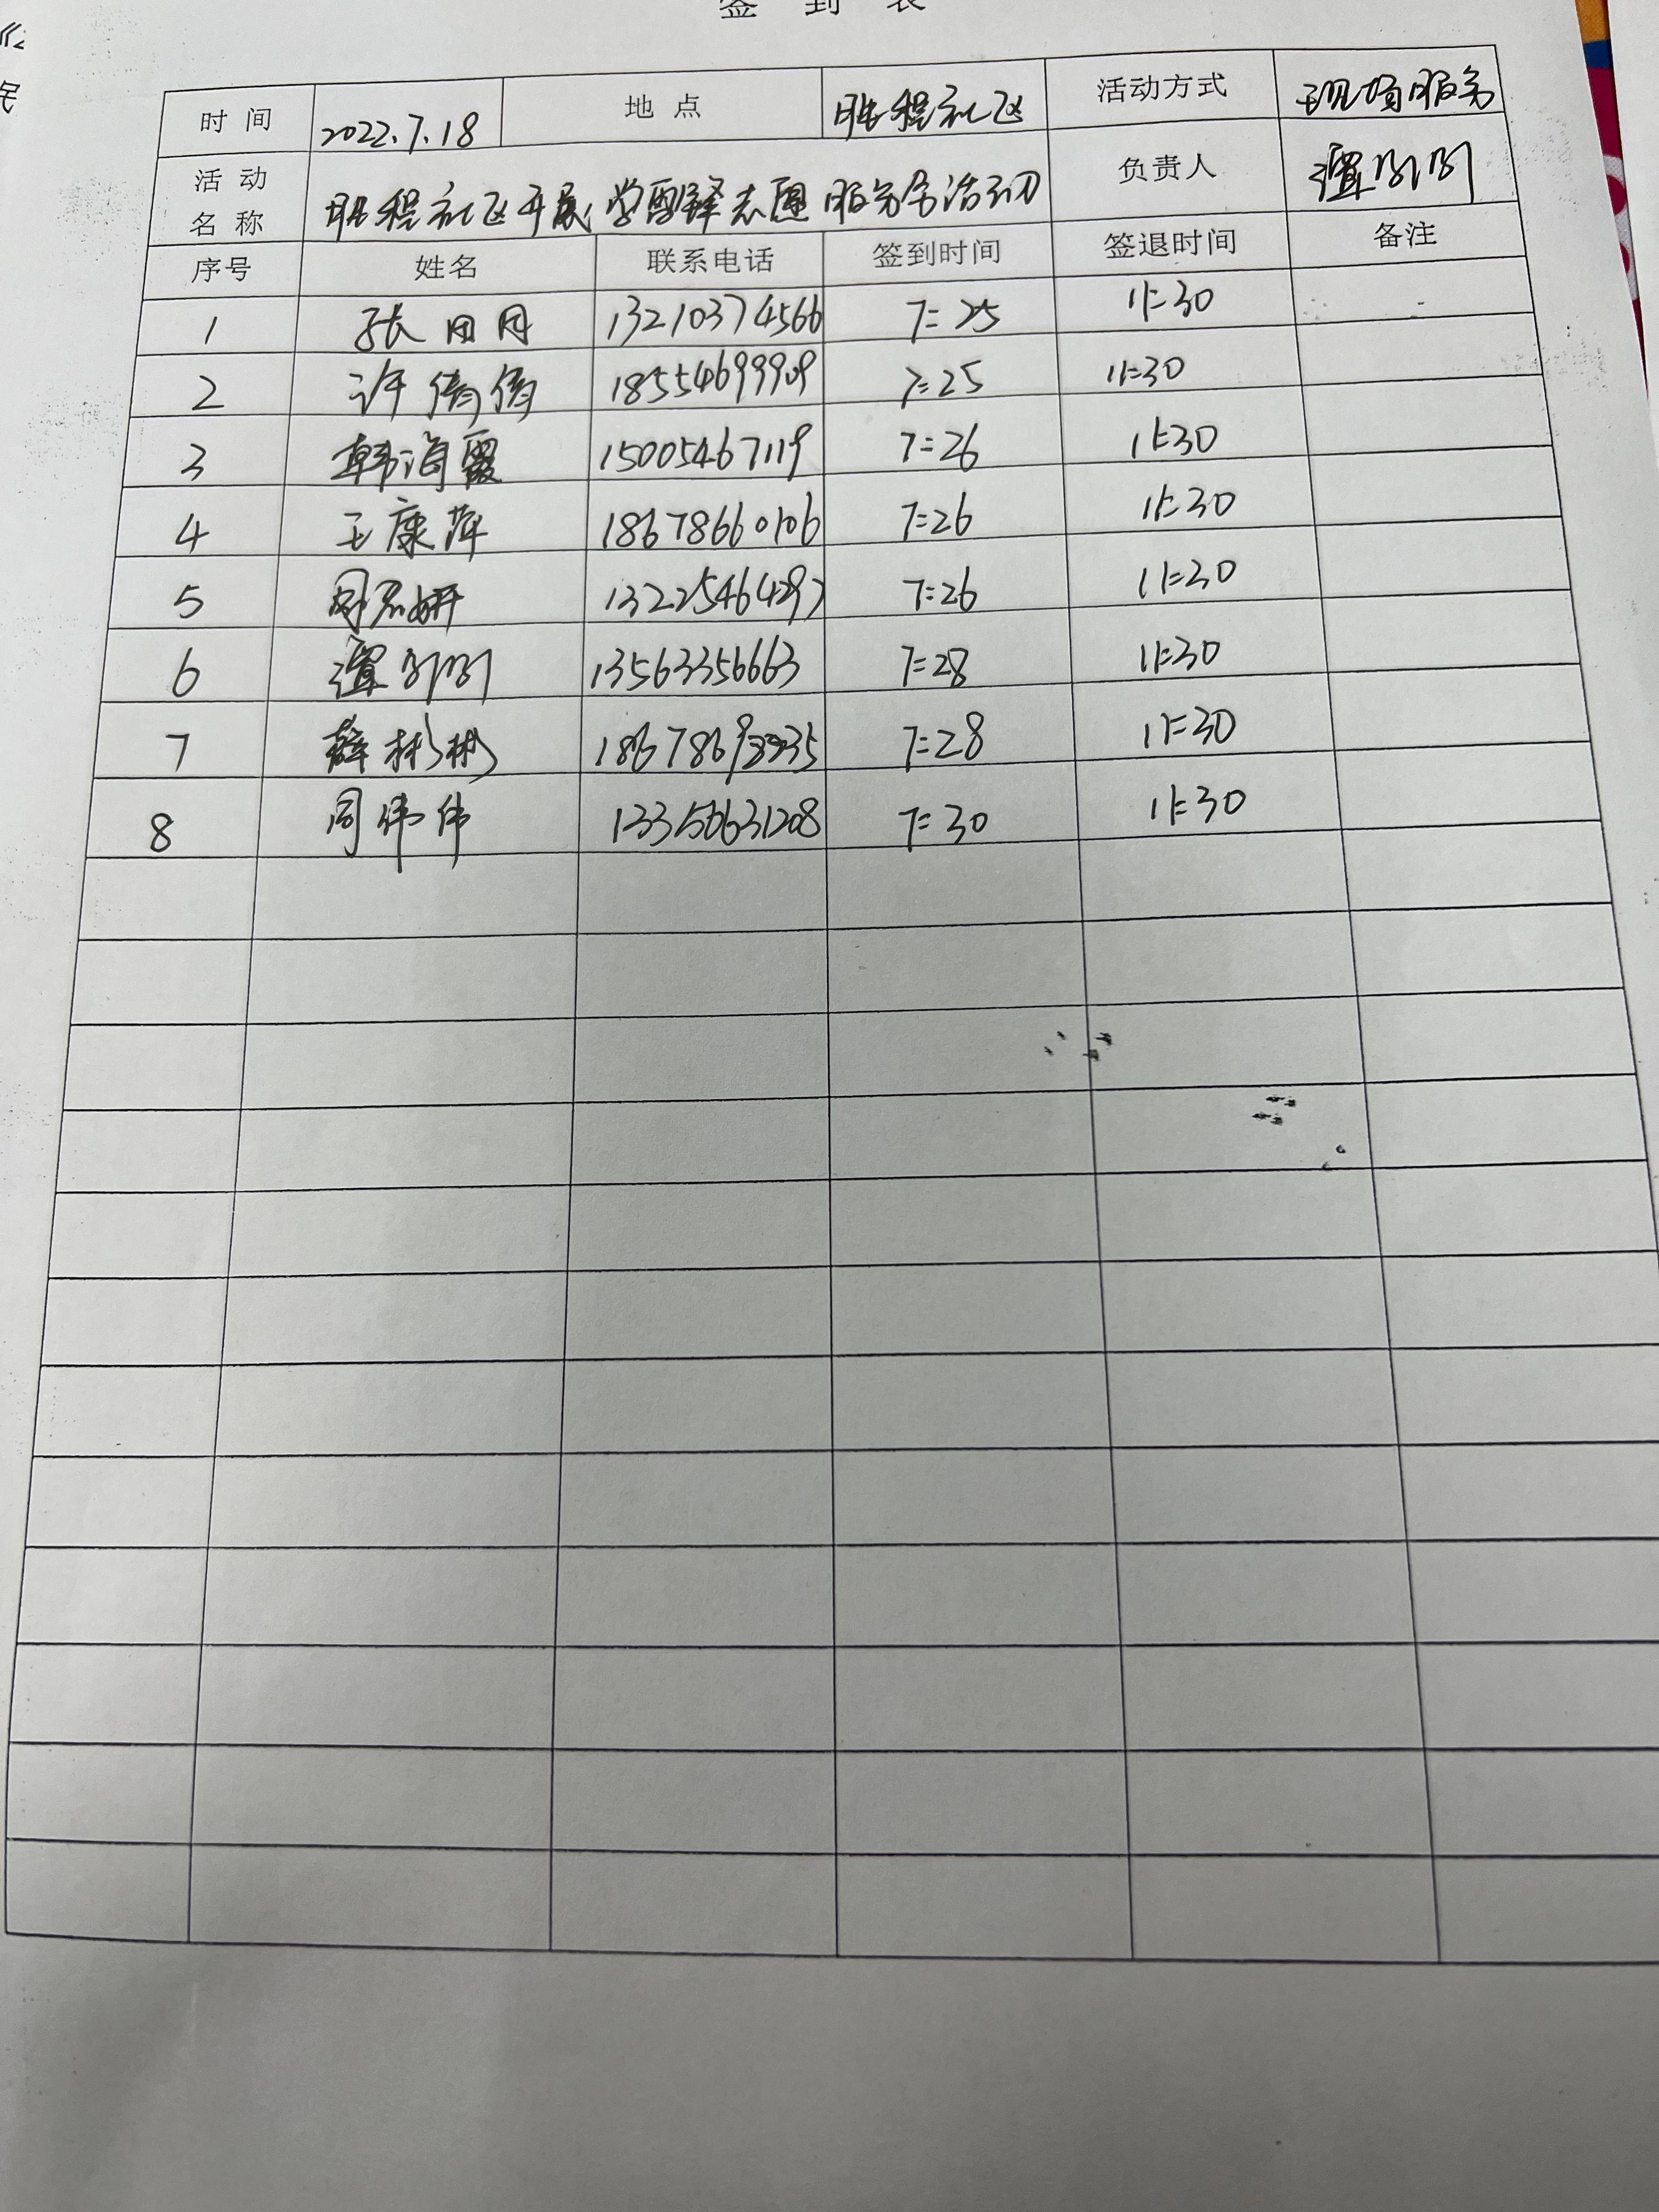 签 到 表
时 间 2022.7.18 地 点 胜程社区 活动方式 现场服务
活 动 名 称 胜程社区开展学雷锋志愿服务活动 负责人 谭
序号 姓名 联系电话 签到时间 签退时间 备注
1 张田田 13210374566 7:25 11:30
2 许倩倩 18554699909 7:25 11:30
3 韩海霞 15005467119 7:26 11:30
4 王康萍 18678660106 7:26 11:30
5 7:26 11:30
6 谭 13563356663 7:28 11:30
7 薛彬彬 7:28 11:30
8 周伟伟 7:30 11:30
民